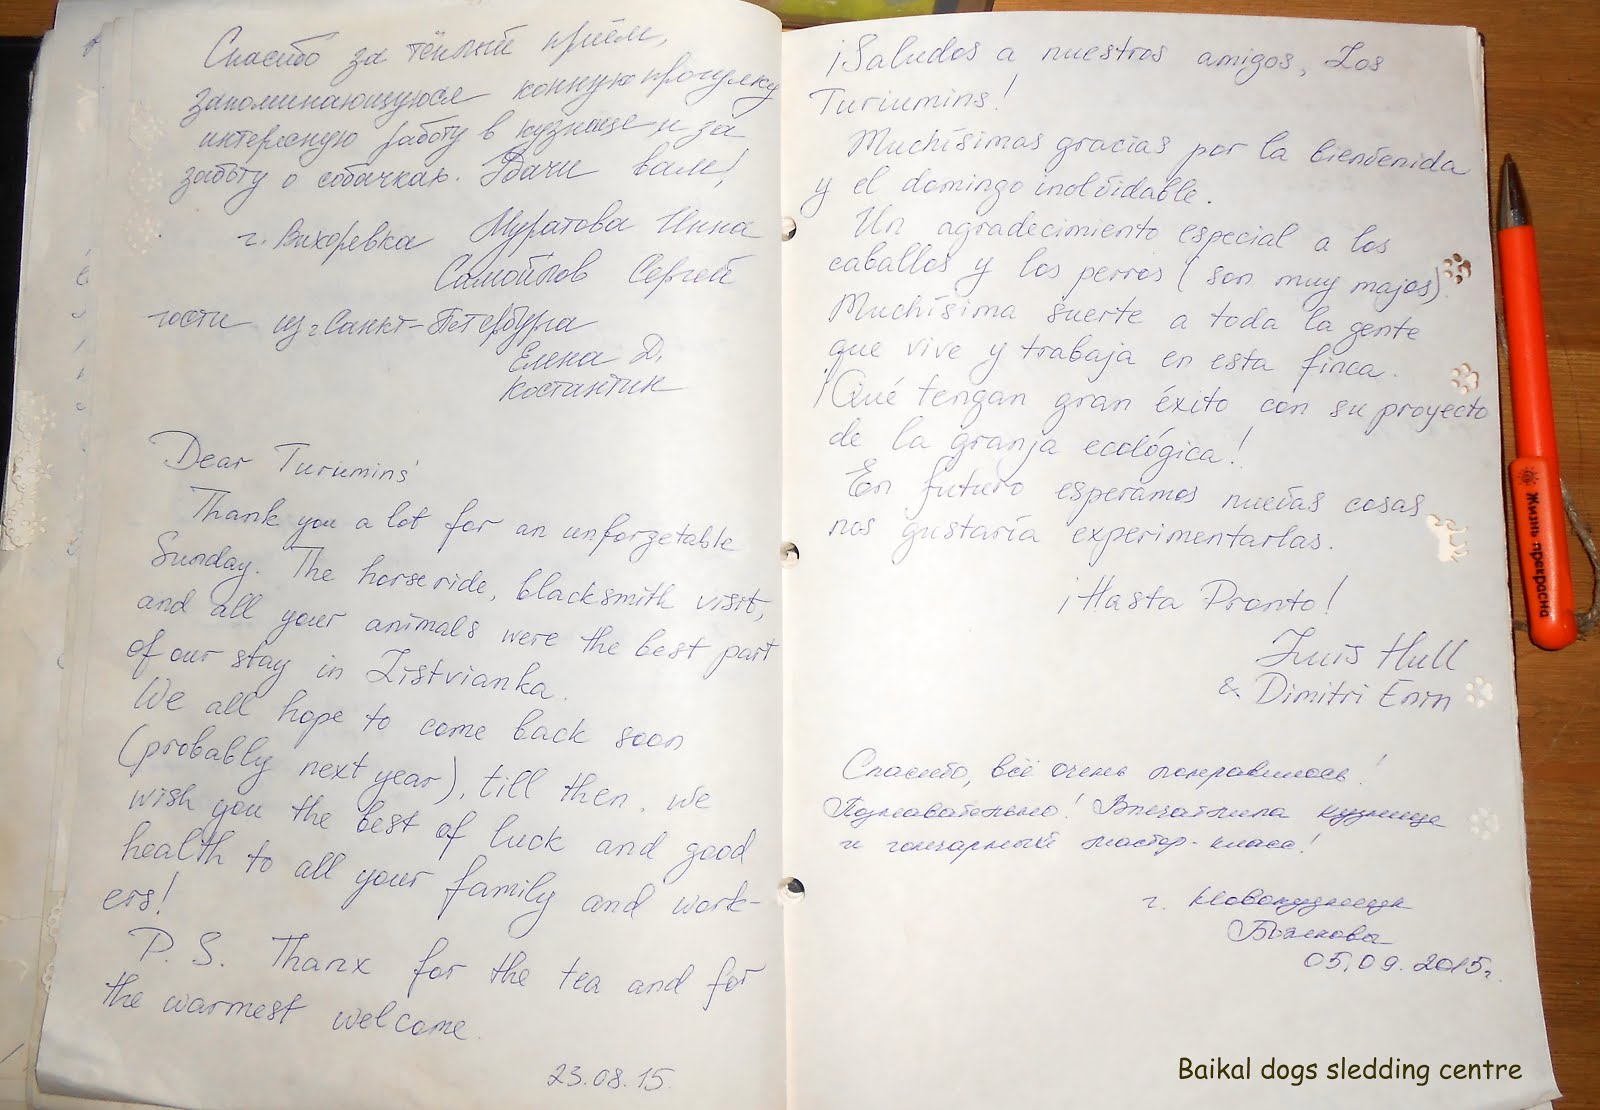 Спасибо за тёплый приём,
запоминающуюся конную прогулку
интересную работу в кузнице и за
заботу о собачках. Удачи вам!
г. Вихоревка Муратова Инна
Самойлов Сергей
гости из г. Санкт-Петербурга
Елена Д.
Костантин
Dear Turiumins'
Thank you a lot for an unforgetable
Sunday. The horse ride, blacksmith visit,
and all your animals were the best part
of our stay in Listvianka.
We all hope to come back soon
(probably next year), till then, we
wish you the best of luck and good
health to all your family and work-
ers!
P. S. Thanx for the tea and for
the warmest welcome.
23.08.15.
¡Saludos a nuestros amigos, Los
Turiumins!
Muchísimas gracias por la bienvenida
y el domingo inolvidable.
Un agradecimiento especial a los
caballos y los perros (son muy majos).
Muchísima suerte a toda la gente
que vive y trabaja en esta finca.
¡Qué tengan gran éxito con su proyecto
de la granja ecológica!
En futuro esperamos nuevas cosas
nos gustaría experimentarlas.
¡Hasta Pronto!
Luis Hull
& Dimitri Enin
Спасибо, всё очень понравилось!
Познавательно! Впечатлила кузница
и гончарный мастер-класс!
г. Новокузнецк
05.09.2015г.
Жизнь прекрасна
Baikal dogs sledding centre